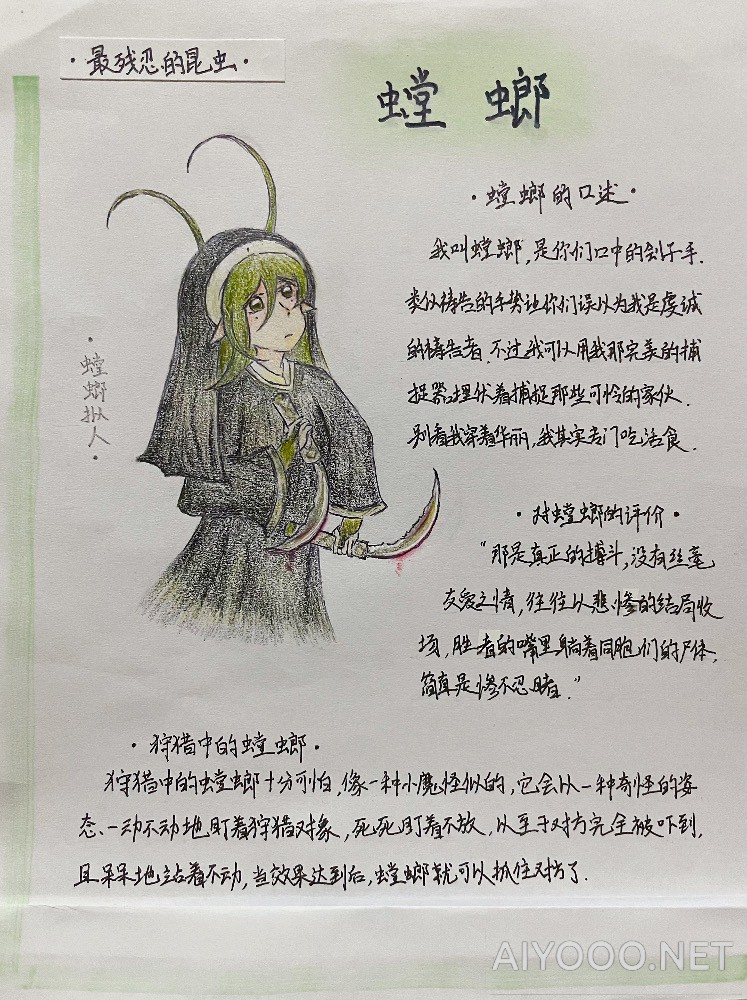 ·最残忍的昆虫·
螳 螂
·螳螂的口述·
我叫螳螂，是你们口中的刽子手.
类似祷告的手势让你们误以为我是虔诚
的祷告者.不过我可以用我那完美的捕
捉器埋伏着捕捉那些可怜的家伙.
别看我穿着华丽，我其实专门吃活食.
·螳螂拟人·
·对螳螂的评价·
“那是真正的搏斗，没有丝毫
友爱之情，往往以悲惨的结局收
场，胜者的嘴里躺着同胞们的尸体，
简直是惨不忍睹.”
·狩猎中的螳螂·
狩猎中的螳螂十分可怕，像一种小魔怪似的，它会以一种奇怪的姿
态、一动不动地盯着狩猎对象，死死盯着不放，以至于对方完全被吓到，
且呆呆地站着不动，当效果达到后，螳螂就可以抓住对方了.
AIYOOO.NET